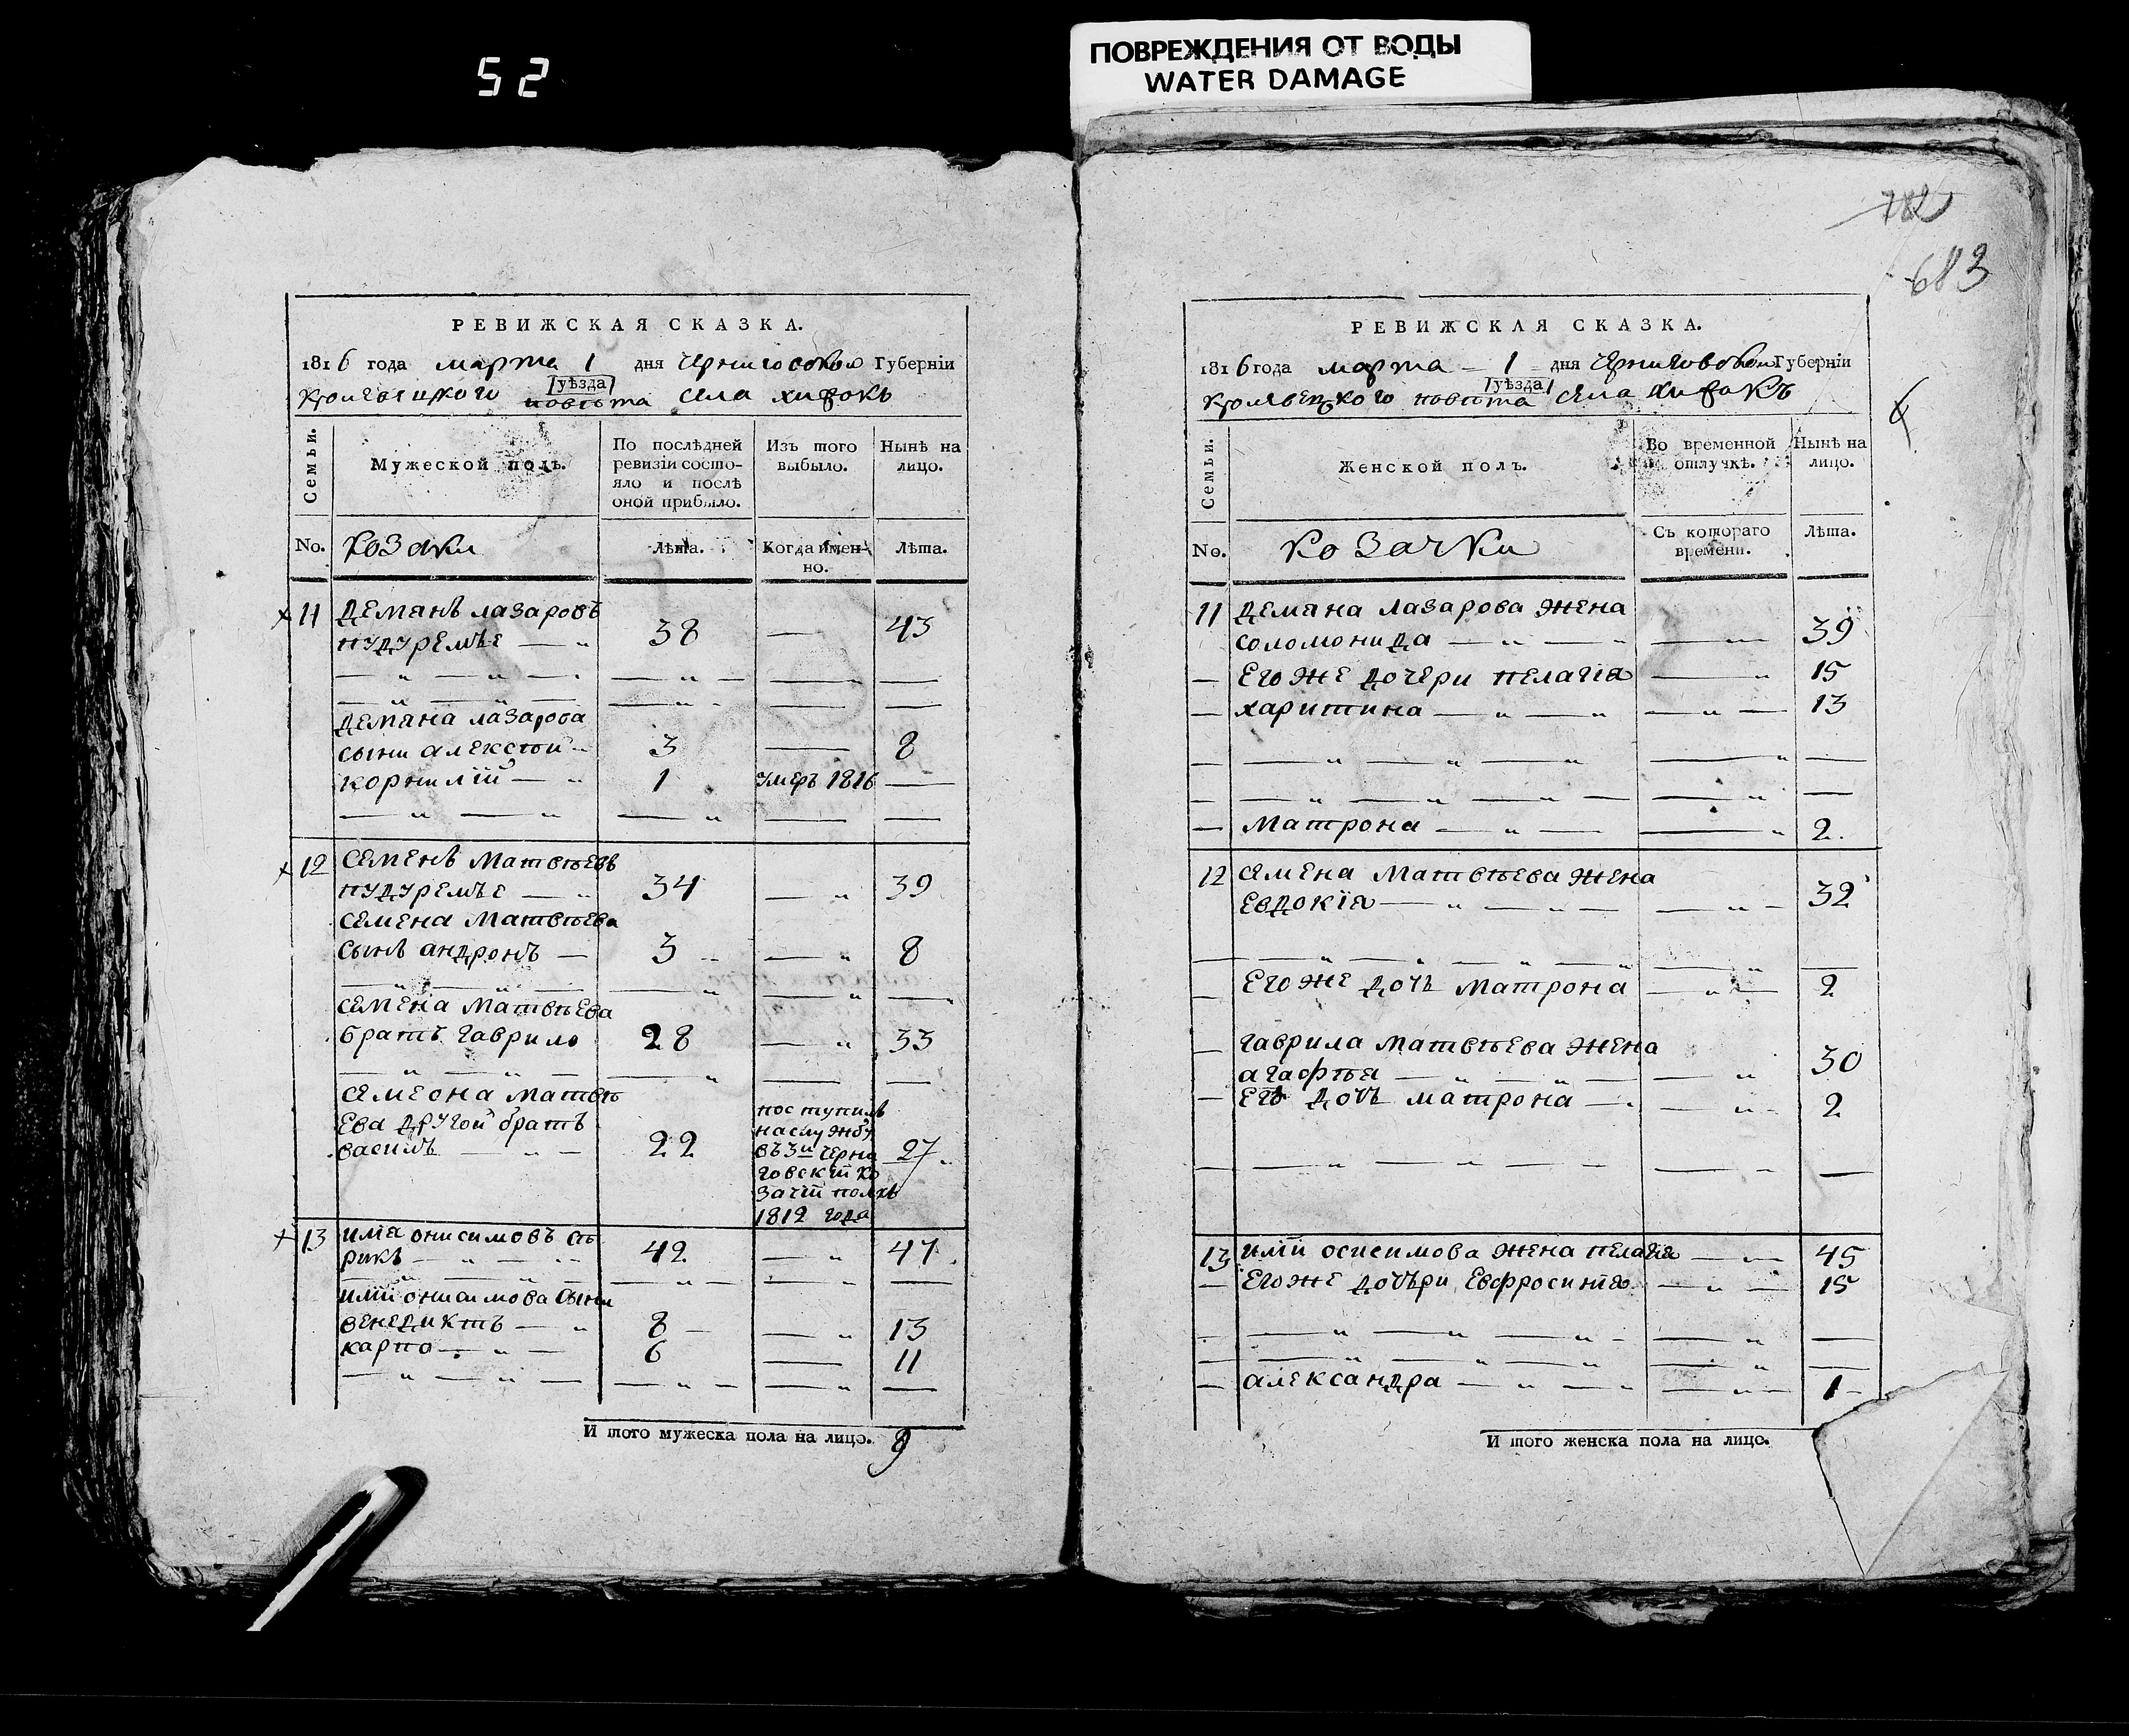 52
ПОВРЕЖДЕНИЯ ОТ ВОДЫ
WATER DAMAGE
РЕВИЖСКАЯ СКАЗКА.
1816 года марта 1 дня Черниговской Губерніи
уѣзда
Кролевецкого повѣта села
Семьи.
Мужеской полъ.
По послѣдней ревизіи состо-
яло и послѣ
оной прибыло.
Изъ того выбыло.
Нынѣ на лицо.
No. козаки
Лѣта.
Когда имен-
но.
Лѣта.
11 Демянъ лазаровъ
пудуремъе 38 — 43
Демяна лазарова
сыни алексѣй 3 — 8
корнилій 1 умеръ 1816 —
12 Семенъ Матвѣевъ
пудуремъе 34 — 39
Семена Матвѣева
сынъ андронъ 3 — 8
Семена Матвѣева
братъ гаврило 28 — 33
Семеона Матвѣ
ева другой братъ
василь 22 27
поступилъ
на службу
въ 3й черни
говскій ко
зачій полкъ
1812 года
13 илія онисимовъ
рикъ 42 — 47
иліи онисимова сыни
венедиктъ 8 — 13
карпо 6 — 11
И того мужеска пола на лицо. 9
782
683
РЕВИЖСКАЯ СКАЗКА.
1816 года марта 1 дня Черниговской Губерніи
уѣзда
Кролевецкого повѣта села
Семьи.
Женской полъ.
Во временной
отлучкѣ.
Нынѣ на
лицо.
No. козачки
Съ котораго
времени.
Лѣта.
11 Демяна Лазарова жена
соломонида 39
его же дочери пелагія 15
харитина 13
Матрона 2
12 Семена Матвѣева жена
Евдокія 32
его же дочь Матрона 2
гаврила Матвѣева жена
агафѣя 30
его дочь матрона 2
13 иліи осисимова жена пелагія 45
его же дочъри Евфросинія 15
александра 1
И того женска пола на лицо.